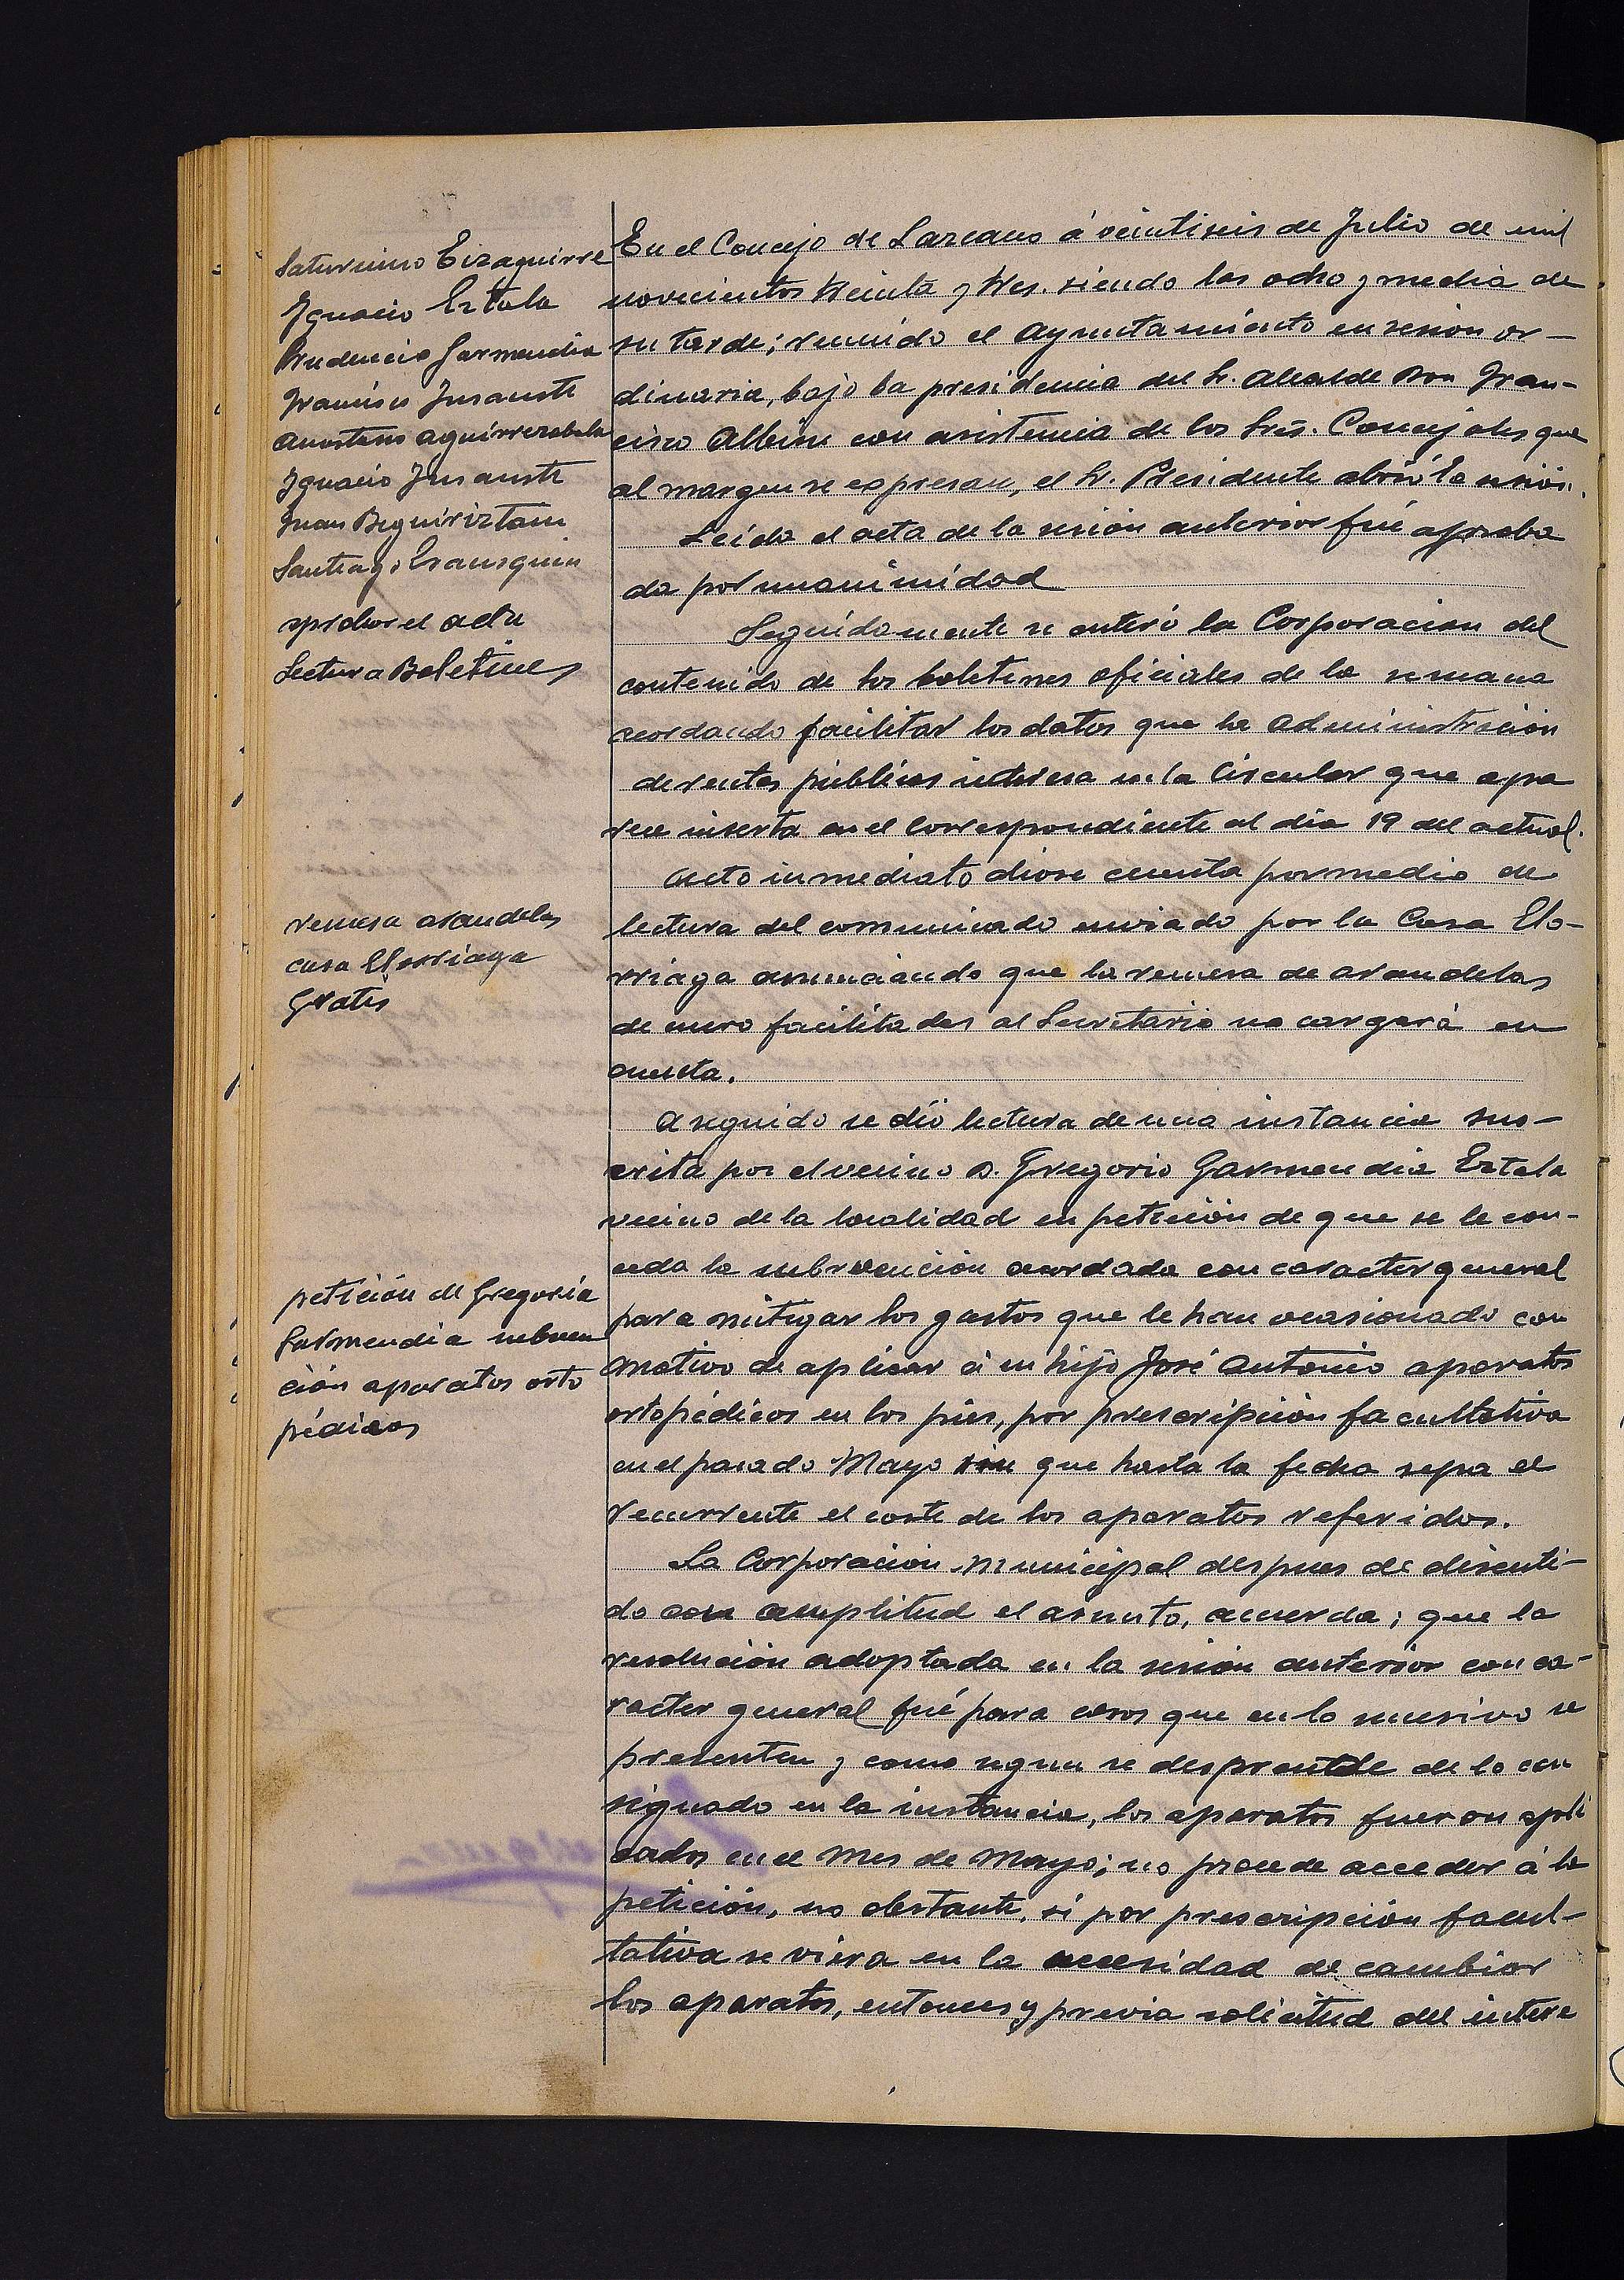 Saturnino Eizaguirre
Ignacio Eztala
Prudencio Garmendia
Francisco Insausti
Anastasio Aguirrezabala
Ignacio Insausti
Juan Beguiriztain
Santiago Erausquin
aprobar el acta
Lectura Boletines
remesa arandelas
casa Elorriaga
Gratis
petición de Gregorio
Garmendia subven
ción aparatos orto
pédicos
En el Concejo de Lazcano á veintiseis de Julio de mil
novecientos treinta y tres. siendo las ocho y media de
su tarde; reunido el Ayuntamiento en sesion or-
dinaria, bajo la presidencia del Sr. Alcalde Don Fran-
cisco Albisu con asistencia de los Sres. Concejales que
al margen se expresan, el Sr. Presidente abrió la sesión.
Leída el acta de la sesión anterior fué aproba
da por unanimidad
Seguidamente se enteró la Corporación del
contenido de los boletines oficiales de la semana
acordando facilitar los datos que la Administración
de rentas públicas interesa en la Circular que apa
rece inserta en el correspondiente al dia 19 del actual.
Acto inmediato diose cuenta por medio de
lectura del comunicado enviado por la Casa Elo-
rriaga anunciando que la remesa de arandelas
de cuero facilitadas al Secretario no cargará en
cuenta.
A seguido se dió lectura de una instancia sus-
crita por el vecino D. Gregorio Garmendia Eztala
vecino de la localidad en petición de que se le con-
ceda la subvención acordada con caracter general
para mitigar los gastos que le han ocasionado con
motivo de aplicar á su hijo José Antonio aparatos
ortopédicos en los piés, por prescripción facultativa
en el pasado Mayo sin que hasta la fecha sepa el
recurrente el coste de los aparatos referidos.
La Corporación Municipal despues de discuti-
do con amplitud el asunto, acuerda; que la
resolución adoptada en la sesión anterior con ca-
racter general fué para casos que en lo sucesivo se
presenten y como segun se desprende de lo con
signado en la instancia, los aparatos fueron apli
cados en el mes de Mayo; no procede acceder á la
petición, no obstante, si por prescripción facul-
tativa se viera en la necesidad de cambiar
los aparatos, entonces y previa solicitud del intere